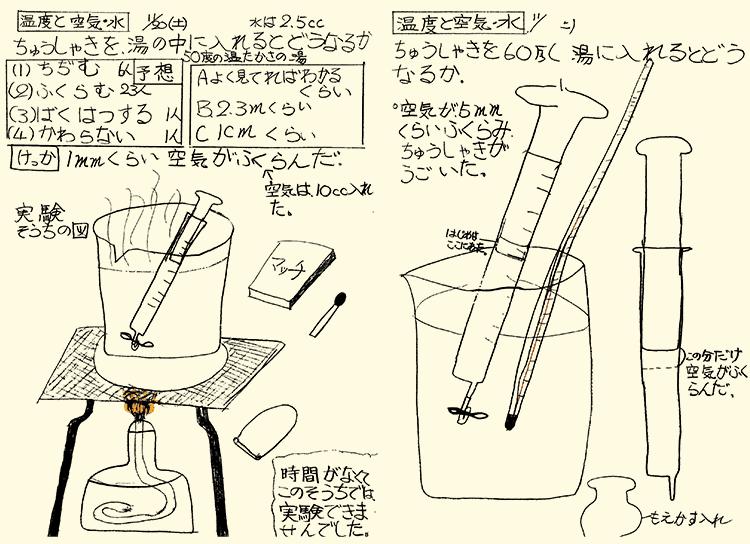 温度と空気・水 11/30(土)
水は2.5cc
ちゅうしゃきを、湯の中に入れるとどうなるか
50度の温たかさの湯
(1)ちぢむ 6人 予想
(2)ふくらむ 23人
(3)ばくはつする 1人
(4)かわらない 1人
Aよく見てればわかる
くらい
B.2.3mくらい
C 1cm くらい
けっか 1mmくらい 空気がふくらんだ。
空気は、10cc入れ
た。
実験
そうちの図
マッチ
時間がなくて
このそうちでは、
実験できま
せんでした。
温度と空気・水
ちゅうしゃきを60度 湯に入れるとどう
なるか.
空気が5mm
くらいふくらみ.
ちゅうしゃきが
うごいた。
はじめは
ここにあった。
この分だけ
空気がふく
らんだ。
もえかす入れ